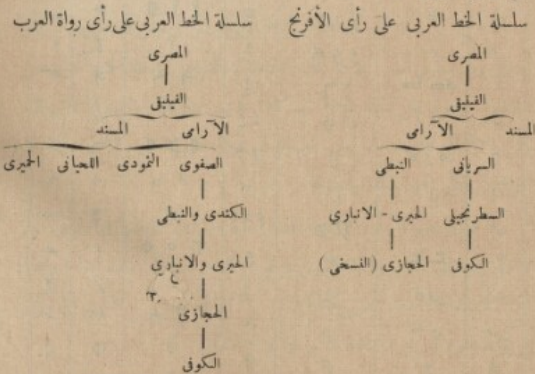 سلسلة الخط العربى على رأى الأفرنج
المصرى
الفينيقى
المسند الآرامى
السريانى النبطى
السطرنجيلى الحيرى - الانبارى
الكوفى الحجازى (النسخى)
سلسلة الخط العربى على رأى رواة العرب
المصرى
الفينيقى
الآرامى المسند
الصفوى الثمودى اللحيانى الحميرى
الكندى والنبطى
الحيرى والانبارى
الحجازى
الكوفى